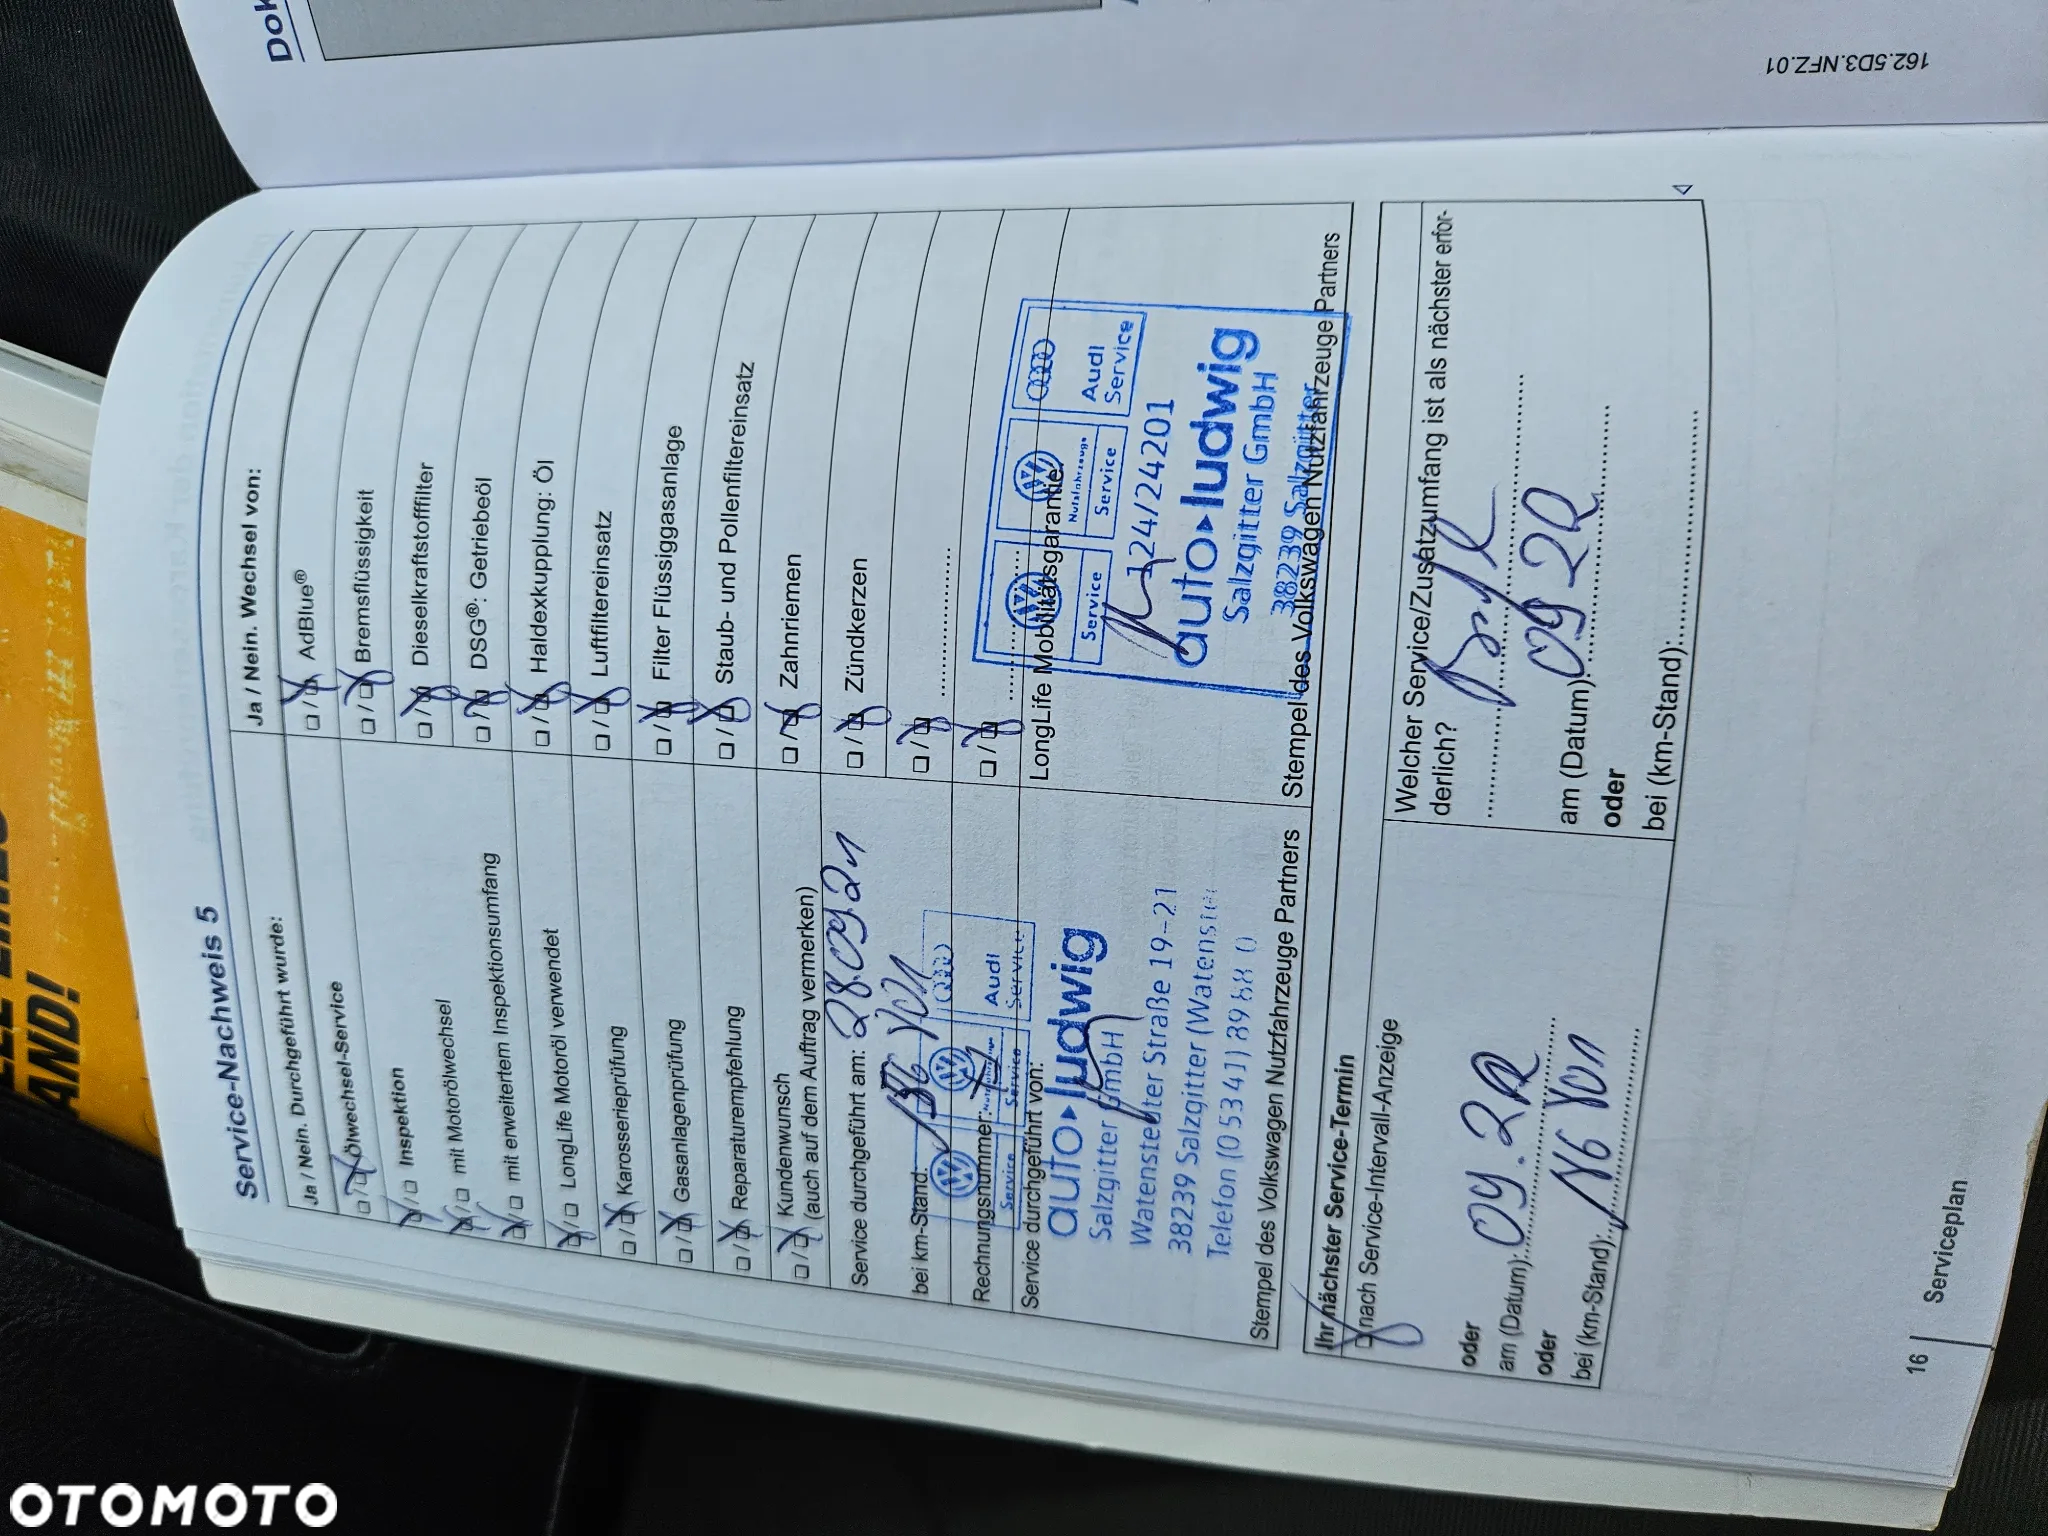 Dok
162.5D3.NFZ.01
AND!
Service-Nachweis 5
Ja / Nein. Durchgeführt wurde:
Ölwechsel-Service
Inspektion
mit Motorölwechsel
mit erweitertem Inspektionsumfang
LongLife Motoröl verwendet
Karosserieprüfung
Gasanlagenprüfung
Reparaturempfehlung
Kundenwunsch
(auch auf dem Auftrag vermerken)
Service durchgeführt am: 28.09.21
bei km-Stand:
Rechnungsnummer:
Service durchgeführt von:
Service
Service
Audi
Service
auto ludwig
Salzgitter GmbH
Watenstedter Straße 19-21
38239 Salzgitter
Telefon (05341)
Stempel des Volkswagen Nutzfahrzeuge Partners
Ja / Nein. Wechsel von:
AdBlue®
Bremsflüssigkeit
Dieselkraftstofffilter
DSG®: Getriebeöl
Haldexkupplung: Öl
Luftfiltereinsatz
Filter Flüssiggasanlage
Staub- und Pollenfiltereinsatz
Zahnriemen
Zündkerzen
LongLife Mobilitätsgarantie
Service
Nutzfahrzeuge
Service
Audi
Service
124/24201
auto ludwig
Salzgitter GmbH
38239 Salzgitter
Stempel des Volkswagen Nutzfahrzeuge Partners
Ihr nächster Service-Termin
nach Service-Intervall-Anzeige
oder
am (Datum): 09.22
oder
bei (km-Stand):
Welcher Service/Zusatzumfang ist als nächster erfor-
derlich?
am (Datum): 09 22
oder
bei (km-Stand):
16
Serviceplan
OTOMOTO